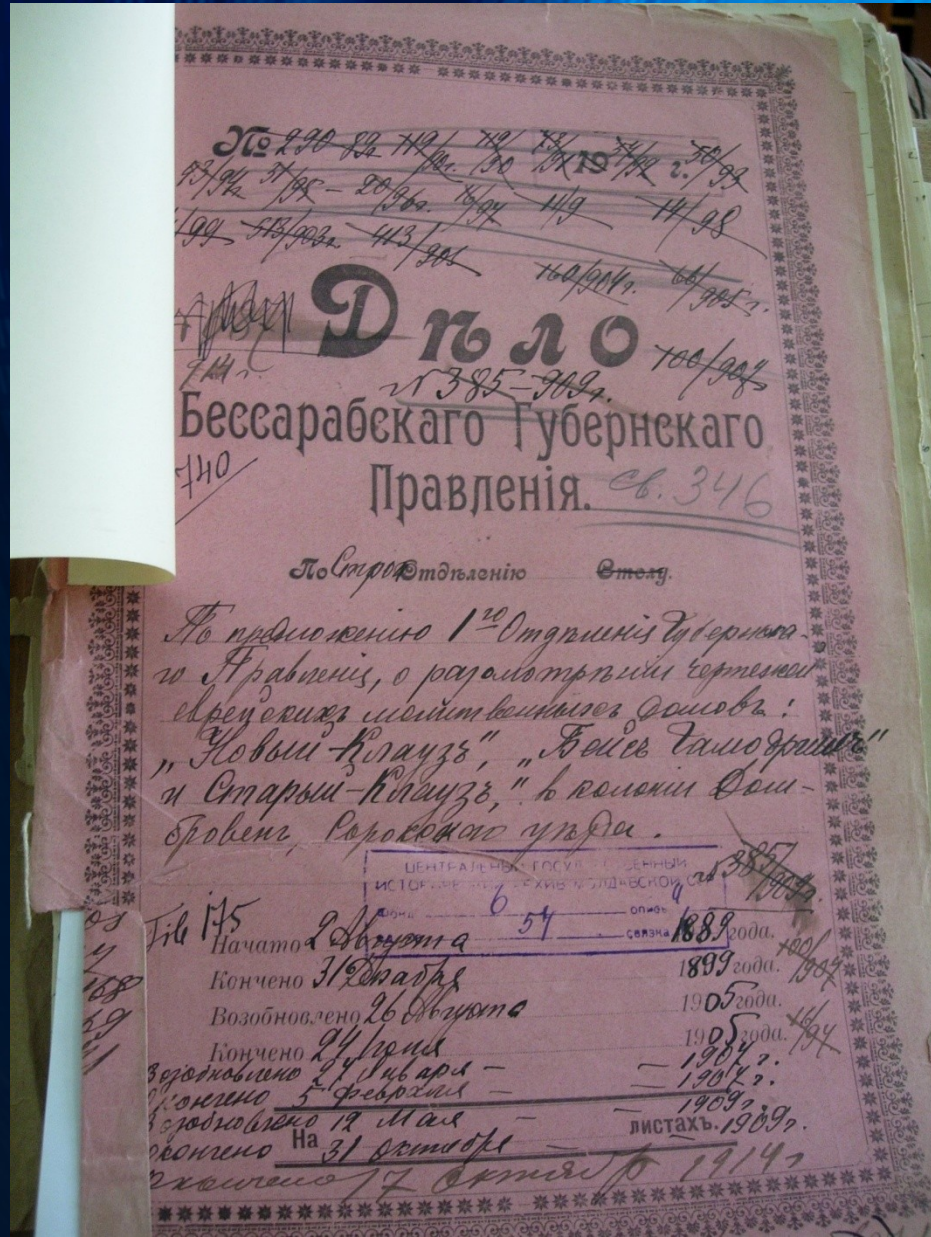 № 290 82 119/ 119/90 73/91 19 37/92 г. 50/93
53/94 51/95 – 20/96г. 16/97 119 14/98
/99 513/903г. 413/901
160/904г. 60/905г.
Дѣло
100/908
914 г.
№ 385–909г.
Бессарабскаго Губернскаго
740
Правленія. св. 346
По Строт Отдѣленію Столу.
По предложенію 1го Отдѣленія Губернска-
го Правленія, о разсмотрѣніи чертежей
еврейскихъ молитвенныхъ домовъ:
„Новый-Клаузъ", „Бейсъ Гамедрашъ"
и Старый-Клаузъ," в колоніи Дом-
бровенъ, Сорокскаго уѣзда.
№ 385/909г.
ЦЕНТРАЛЬНЫЙ ГОСУДАРСТВЕННЫЙ
ИСТОРИЧЕСКИЙ АРХИВ МОЛДАВСКОЙ ССР
6 опись 4
54 связка
175
Начато 2 Августа 1889 года.
Кончено 31 Декабря 1899 года.
100/907
Возобновлено 26 Августа 1905 года.
16/97
Кончено 24 1905 года.
Возобновлено 24 января – — 1907 г.
Окончено 5 февраля — 1907 г.
Возобновлено 12 Мая – — 1909 г.
На листахъ.
окончено 31 октября — 1909 г.
Окончено 17 октября 1914 г